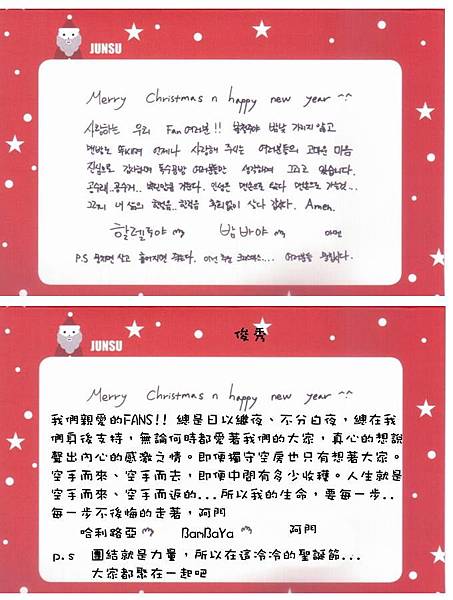 JUNSU
Merry Christmas n happy new year ^^
사랑하는 우리 Fan 여러분!! 불철주야 밤낮 가리지 않고
언제나 사랑해 주시는 여러분들의 고마운 마음
진심으로 감사하며 독수공방 여러분만 생각하며 그리고 있습니다.
공수래..공수거.. 인생은 맨손으로 왔다 맨손으로 가는것...
내 삶의 한걸음.. 한걸음 후회없이 살다 Amen.
할렐루야 밤바야 아멘
P.S 뭉치면 살고 흩어지면 죽는다. 이번 추운 크리스마스...
俊秀
JUNSU
Merry Christmas n happy new year ^^
我們親愛的FANS!! 總是日以繼夜、不分白夜，總在我
們身後支持，無論何時都愛著我們的大家，真心的想說
聲出內心的感激之情。即便獨守空房也只有想著大家。
空手而來、空手而去，即便中間有多少收穫。人生就是
空手而來、空手而返的...所以我的生命，要每一步..
每一步不後悔的走著，阿門
哈利路亞 BanBaYa 阿門
p.s 團結就是力量，所以在這冷冷的聖誕節...
大家都聚在一起吧